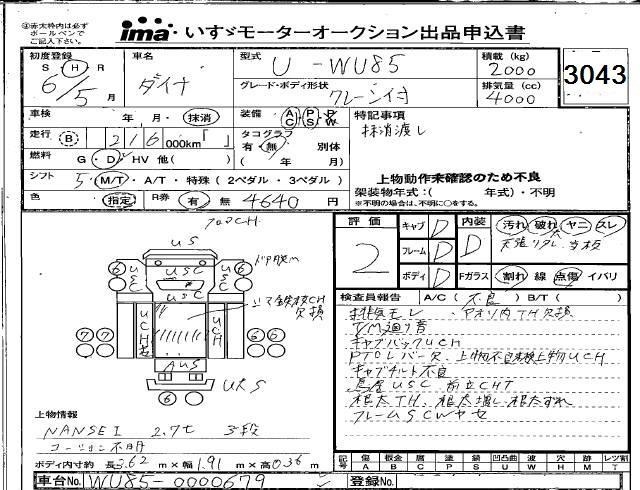 ◎赤太枠内は必ず ボールペンで ご記入下さい。
ima・いすゞモーターオークション出品申込書
初度登録 S・H・R 6/5月
車名 ダイナ
型式 U-WU85
積載(kg) 2000
3043
グレード・ボディ形状 クレーン付
排気量(cc) 4000
車検 年 月・抹消
装備 AC PS PW
特記事項
抹消渡し
走行 B 216000km「 」
タコグラフ 有・無 別体 ( 年 月)
燃料 G・D・HV 他( )
シフト 5 M/T・A/T・特殊(2ペダル・3ペダル)
上物動作未確認のため不良
架装物年式:( 年式)・不明
※不明の場合は、不明に○をする。
色 指定 R券 有 無 4640円
フロマCH
評価 2
キャブ D
フレーム D
ボディ D
内装 D
汚れ・破れ・ヤニ・スレ
Fガラス 割れ 線 点傷・イバリ
US
USC
USC
USC
USC
UCH
UCH
AUS
URS
欠損
6 6 7 7 6
検査員報告 A/C(不良)B/T( )
排気モレ ・アオリ内TH欠損
T/M過り音
キャブバックUCH
PTOレバー欠、上物不良未検上物UCH
キャブチルト不良
鳥居USC 前立CHT
根太TH、根太増し、根太ずれ
フレームSCWヤセ
上物情報
NANSEI 2.9t 3段
コーション不明
ボディ内寸約 長3.62m×幅1.91m×高0.36m
記号 傷A 板金B 腐C 塗P サビS 凹凸曲U 波W 穴H 欠M レツ割T
車台No. WU85-0000679
登録No.